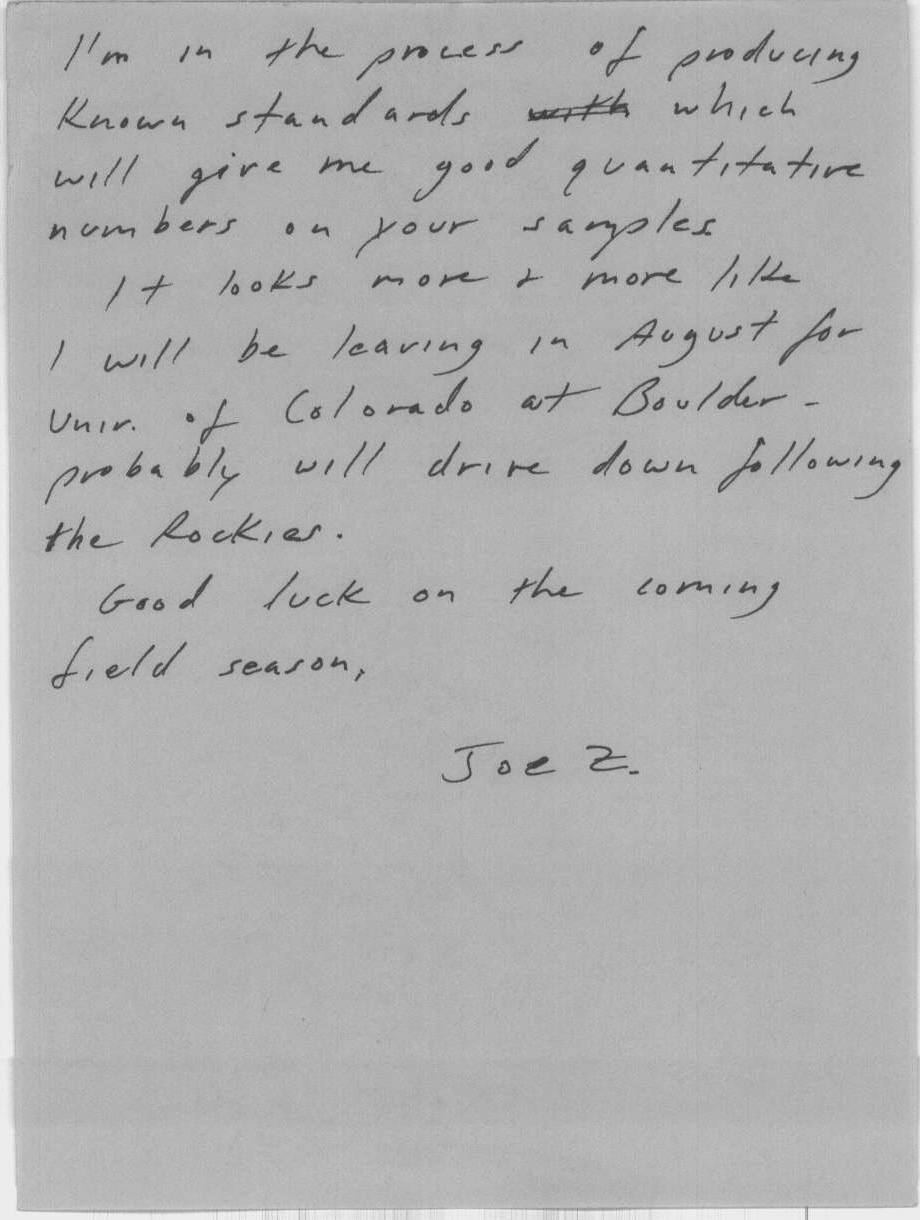 I'm in the process of producing
Known standards with which
will give me good quantitative
numbers on your samples.
It looks more & more like
I will be leaving in August for
Univ. of Colorado at Boulder -
probably will drive down following
the Rockies.
Good luck on the coming
field season,
Joe Z.